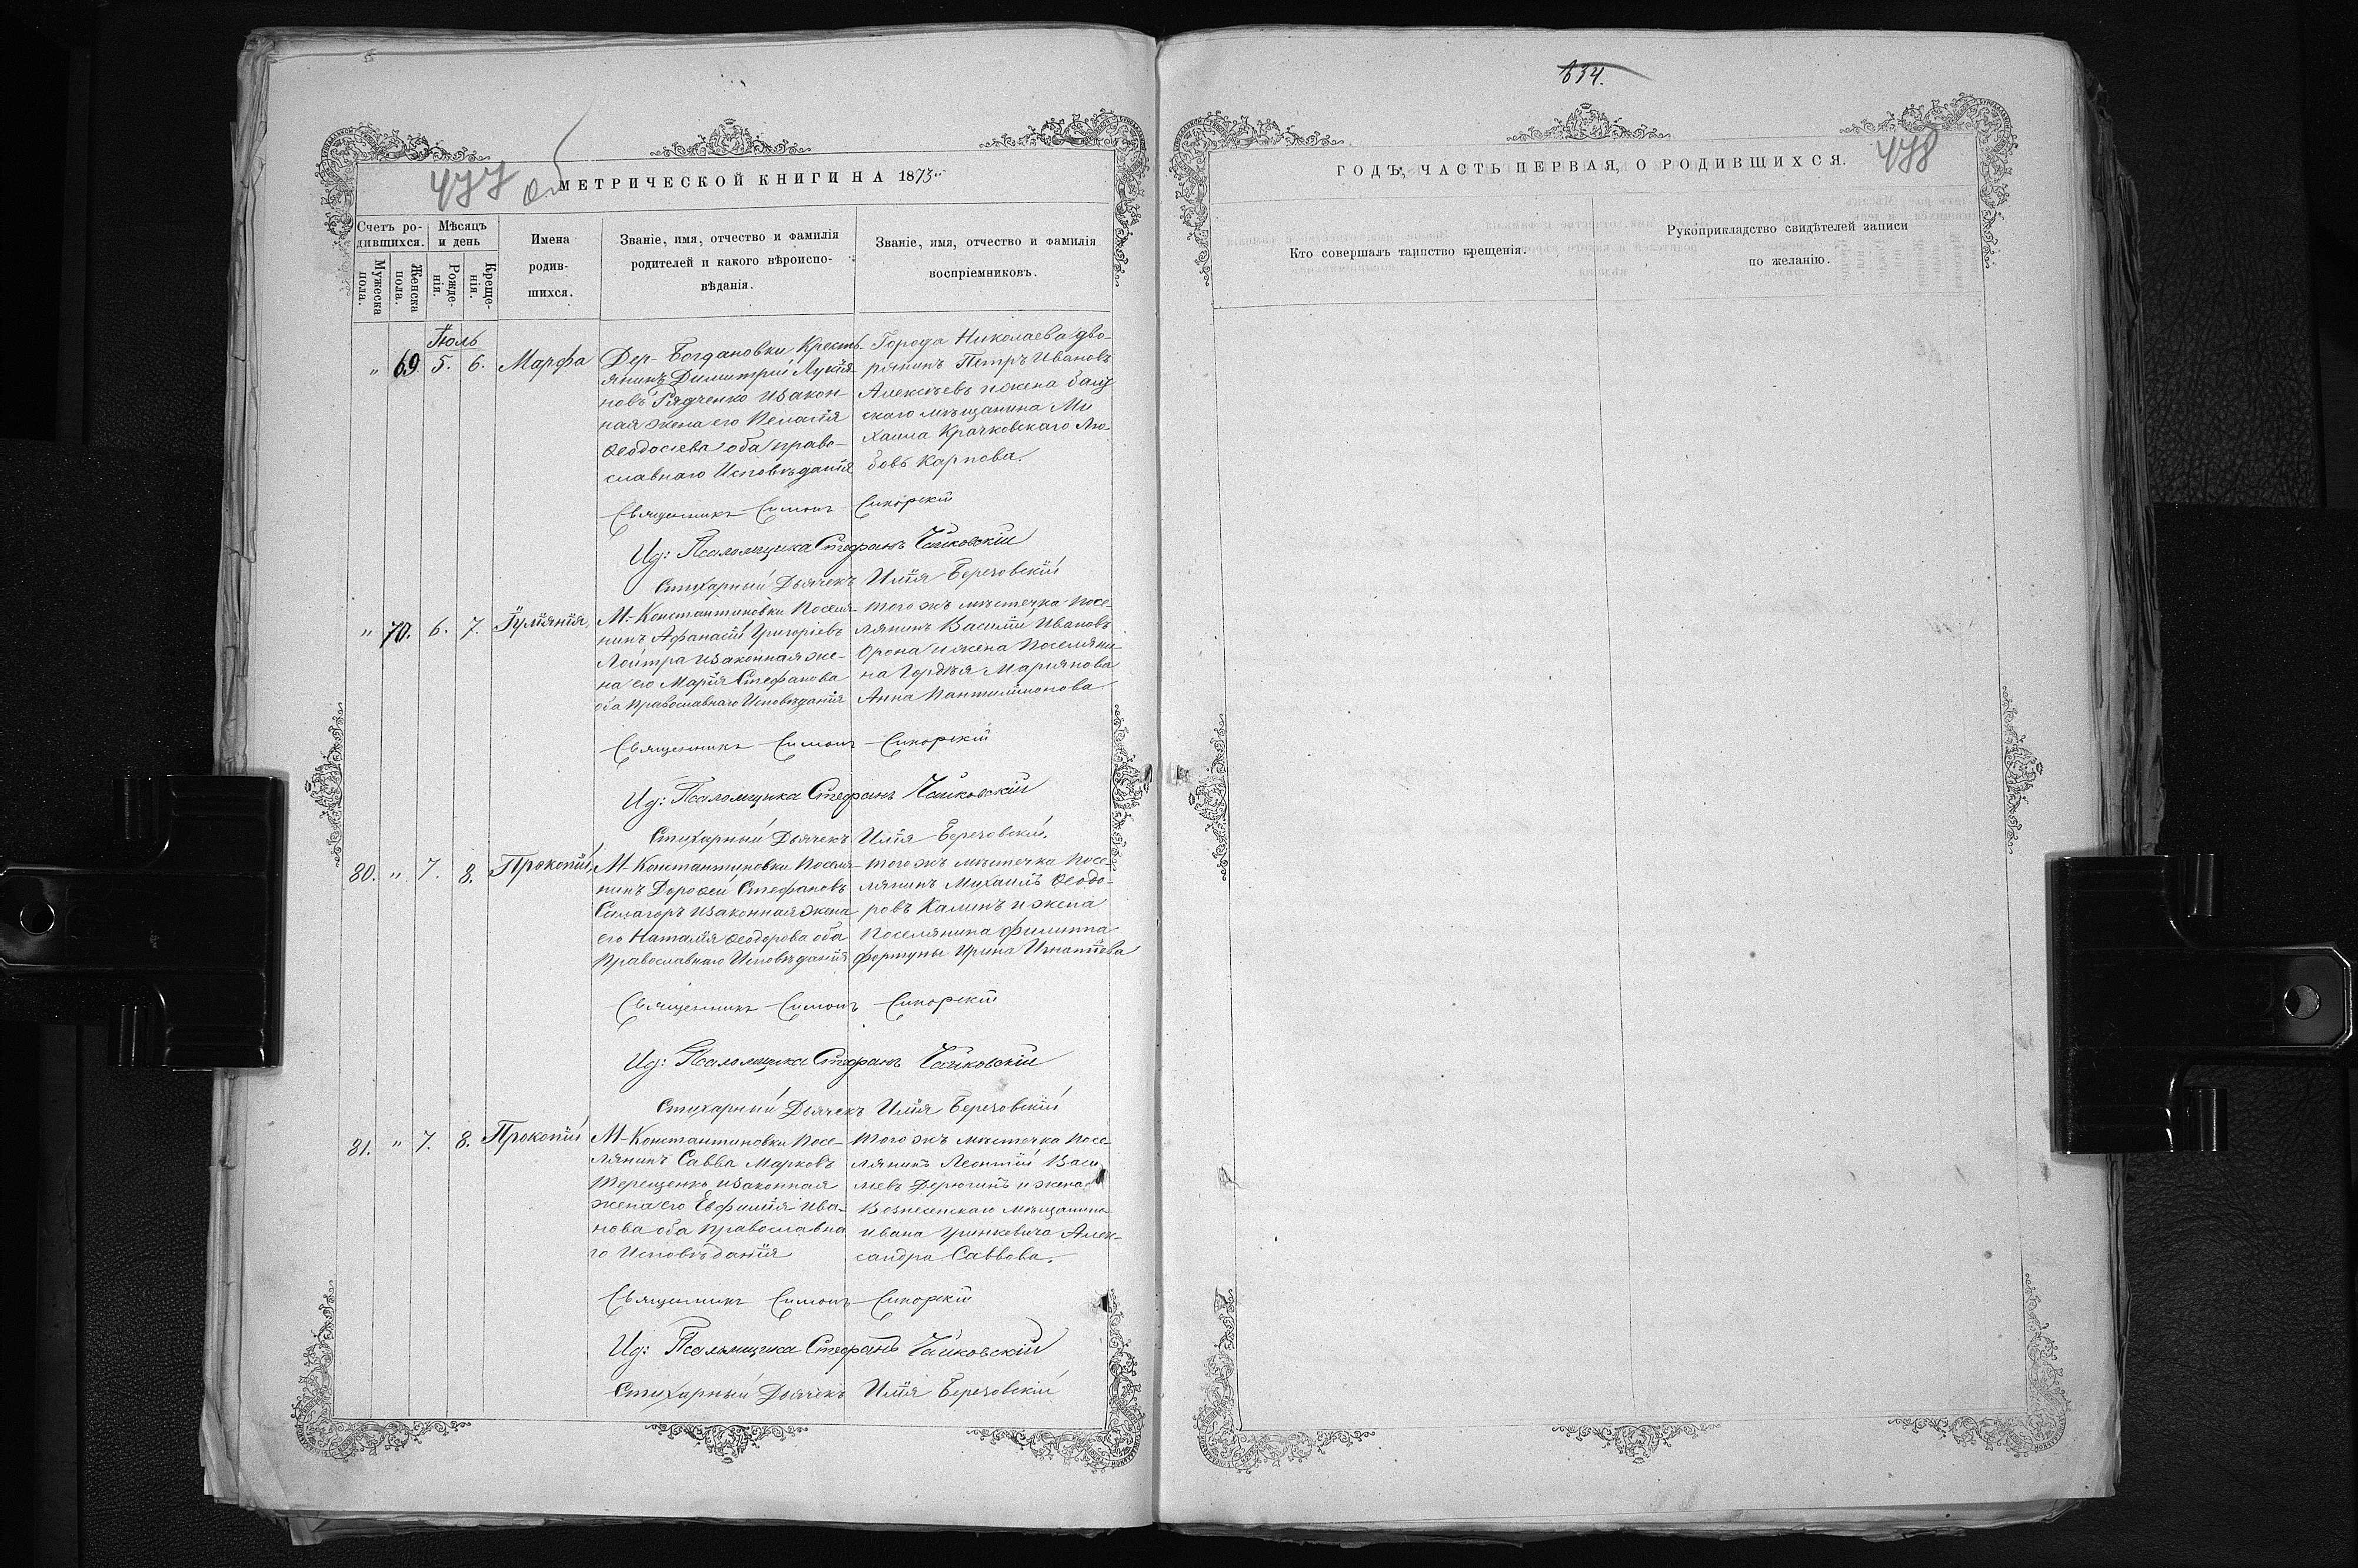 477 об
МЕТРИЧЕСКОЙ КНИГИ НА 1873
Счетъ родившихся.
Мѣсяцъ и день
Мужеска пола.
Женска пола.
Рожденія.
Крещенія.
Имена родившихся.
Званіе, имя, отчество и фамилія родителей и какого вѣроисповѣданія.
Званіе, имя, отчество и фамилія воспріемниковъ.
Іюль
" 69 5. 6. Марфа
Дер- Богдановки Кресть-
янинъ Димитрій Лукія-
новъ Рядченко и закон-
ная жена его Пелагія
Ѳеодосіева оба право-
славнаго Исповѣданія
Города Николаева дво-
рянинъ Петръ Ивановъ
Алексѣевъ и жена
скаго мѣщанина Ми
хаила Крачковскаго Лю-
бовь Карпова.
Священникъ Симонъ Сикорскій
Ид: Псаломщика Стефанъ Чайковскій
Стихарный Дьячекъ Илія Березовскій
" 70. 6. 7. Іуліянія
М- Константиновки Поселя-
нинъ Афанасій Григоріевъ
Лойтра и законная же-
на его Марія Стефанова
оба Православнаго Исповѣданія
того жъ мѣстечка Посе-
лянинъ Василій Ивановъ
Орона и жена Поселяни-
на Гордѣя Маріянова
Анна Пантилимонова
Священникъ Симонъ Сикорскій
Ид: Псаломщика Стефанъ Чайковскій
Стихарный Дьячекъ Илія Березовскій.
80. " 7. 8. Прокопій
М- Константиновки Поселя-
нинъ Дороѳей Стефановъ
Силагоръ и законная жена
его Наталія Ѳеодорова оба
Православнаго Исповѣданія
того жъ мѣстечка Посе-
лянинъ Михаилъ Ѳеодо-
ровъ Калинъ и жена
Поселянина Филиппа
Фортуны Ирина Игнатіева
Священникъ Симонъ Сикорскій
Ид: Псаломщика Стефанъ Чайковскій
Стихарный Дьячекъ Илія Березовскій
81. " 7. 8. Прокопій
М- Константиновки Посе-
лянинъ Савва Марковъ
Терещенко и законная
жена его Евфимія Ива-
нова оба Православна
го Исповѣданія
того жъ мѣстечка Посе-
лянинъ Леонтій Васи
льевъ Дерюгинъ и жена
Вознесенскаго мѣщанина
Ивана Гринкевича Алек-
сандра Саввова.
Священникъ Симонъ Сикорскій
Ид: Псаломщика Стефанъ Чайковскій
Стихарный Дьячекъ Илія Березовскій
634.
478
ГОДЪ, ЧАСТЬ ПЕРВАЯ, О РОДИВШИХСЯ.
Кто совершалъ таинство крещенія.
Рукоприкладство свидѣтелей записи
по желанію.